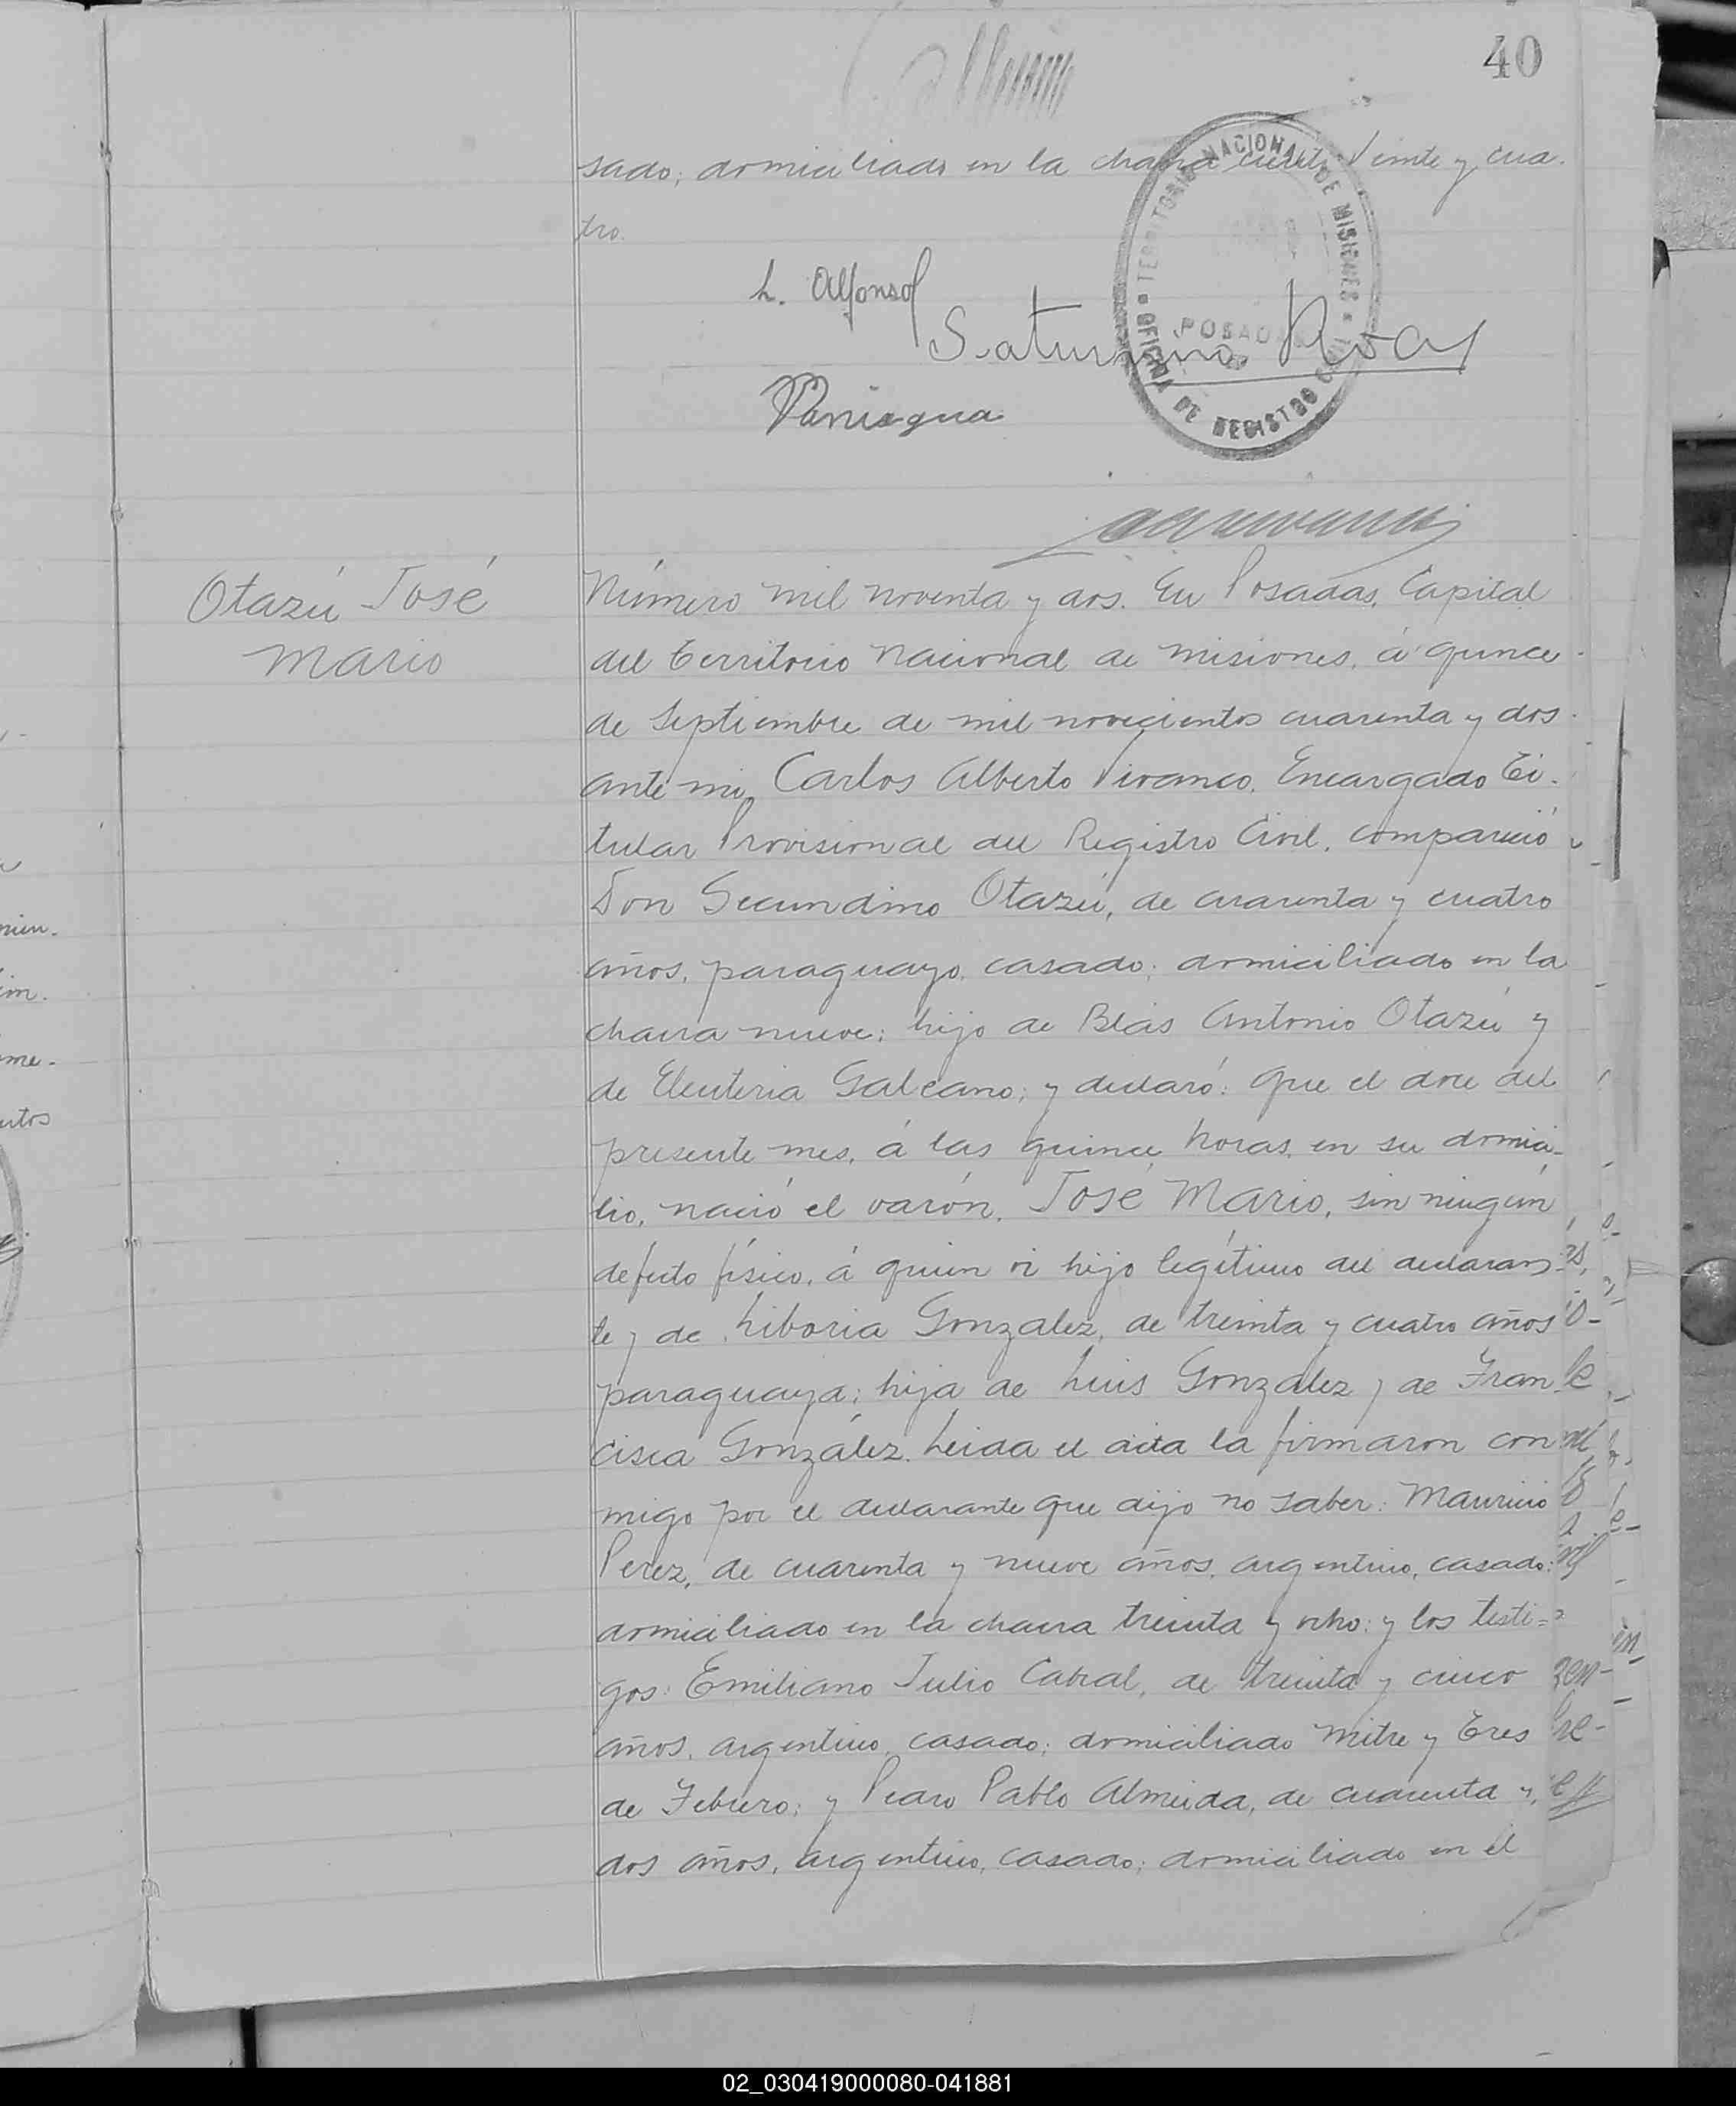 40
sado; domiciliado en la chacra ciento veinte y cua-
tro.
TERRITORIO NACIONAL DE MISIONES
POSADAS
OFICINA DE REGISTRO
L. Alfonso
Saturnino
Paniagua
Otazú José
Mario
Número mil noventa y dos. En Posadas, Capital
del Territorio Nacional de Misiones, á quince
de Septiembre de mil novecientos cuarenta y dos
ante mi, Carlos Alberto Vivanco, Encargado Ti-
tular Provisional del Registro Civil, compareció
Don Secundino Otazú, de cuarenta y cuatro
años, paraguayo, casado; domiciliado en la
chacra nueve; hijo de Blás Antonio Otazú y
de Eleuteria Galeano; y declaró: Que el doce del
presente mes, á las quince horas, en su domici-
lio, nació el varón, José Mario, sin ningún
defecto físico, á quien vi hijo legítimo del declaran-
te y de Liboria Gonzalez, de treinta y cuatro años
paraguaya; hija de Luis González y de Fran-
cisca González. Leida el acta la firmaron con-
migo por el declarante que dijo no saber: Mauricio
Perez, de cuarenta y nueve años, argentino, casado;
domiciliado en la chacra treinta y ocho; y los testi=
gos: Emiliano Julio Cabral, de treinta y cinco
años, argentino, casado; domiciliado Mitre y Tres
de Febrero; y Pedro Pablo Almeida, de cuarenta y
dos años, argentino, casado; domiciliado en el
02_030419000080-041881